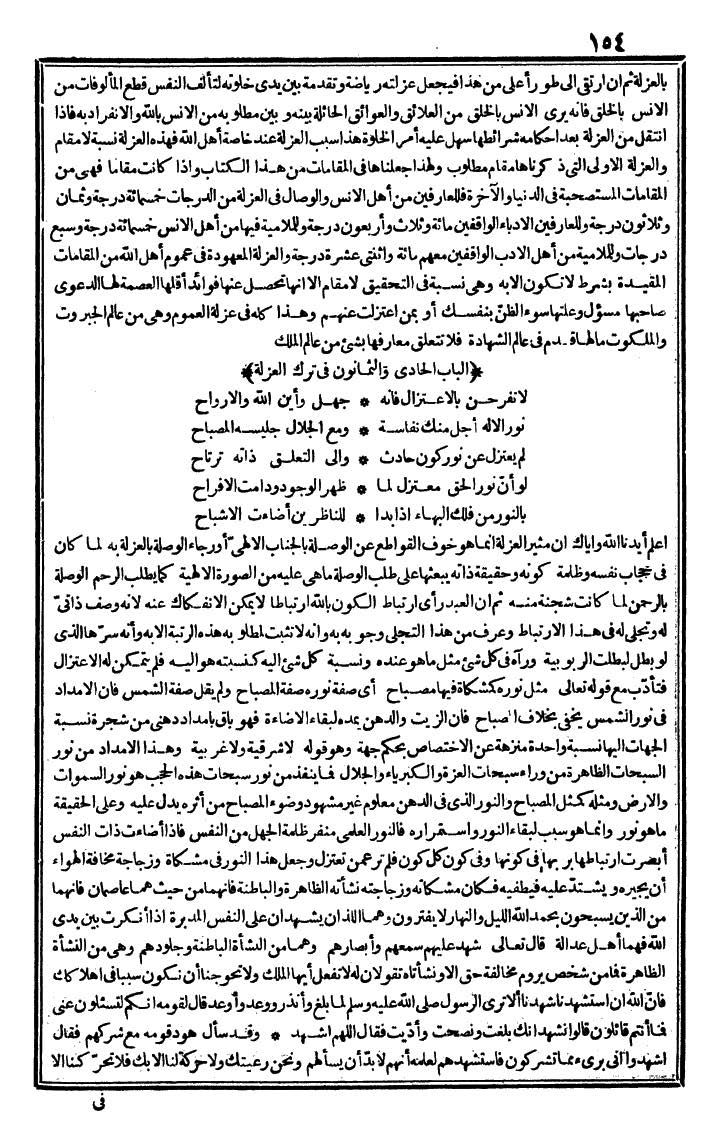 ١٥٤
بالعزلة ثم ان ارتقى الى طور أعلى من هذا فيجعل عزلته رياضة وتقدمة بين يدى خلوته لتألف النفس قطع المألوفات من
الانس بالخلق فانه يرى الانس بالخلق من العلائق والعوائق الحائلة بينه وبين مطلوبه من الانس بالله والانفراد به فاذا
انتقل من العزلة بعد احكامه شرائطها سهل عليه أمر الخلوة هذا سبب العزلة عند خاصة أهل الله فهذه العزلة نسبة لا مقام
والعزلة الاولى التى ذكرناها مقام مطلوب ولهذا جعلناها فى المقامات من هذا الكتاب واذا كانت مقاما فهى من
المقامات المستصحبة فى الدنيا والآخرة فللعارفين من أهل الانس والوصال فى العزلة من الدرجات خمسمائة درجة وثمان
وثلاثون درجة وللعارفين الادباء الواقفين مائة وثلاث وأربعون درجة وللملامية فيها من أهل الانس خمسمائة درجة وسبع
درجات وللملامية من أهل الادب الواقفين معهم مائة واثنتى عشرة درجة والعزلة المعهودة فى عموم أهل الله من المقامات
المقيدة بشرط لا تكون الابه وهى نسبة فى التحقيق لا مقام الا انها تحصل عنها فوائد أقلها العصمة لها الدعوى
صاحبها مسؤل وعلتها سوء الظنّ بنفسك أو بمن اعتزلت عنهم وهذا كله فى عزلة العموم وهى من عالم الجبروت
والملكوت مالها قدم فى عالم الشهادة فلا تتعلق معارفها بشئ من عالم الملك
﴿الباب الحادى والثمانون فى ترك العزلة﴾
لاتفرحن بالاعتزال فانه * جهل وأين الله والارواح
نور الاله أجل منك نفاسة * ومع الجلال جليسه المصباح
لم يعتزل عن نور كون حادث * والى التعلق ذاته ترتاح
لو أنّ نور الحق معتزل لما * ظهر الوجود ودامت الافراح
بالنور من فلك البهاء اذا بدا * للناظرين أضاءت الاشباح
اعلم أيدنا الله واياك ان مثير العزلة انما هو خوف القواطع عن الوصلة بالجناب الالهىّ أو رجاء الوصلة بالعزلة به لما كان
فى حجاب نفسه وظلمة كونه وحقيقة ذاته يبعثها على طلب الوصلة ماهى عليه من الصورة الالهية كما يطلب الرحم الوصلة
بالرحمن لما كانت شجنة منه ثم ان العبد رأى ارتباط الكون بالله ارتباطا لا يمكن الانفكاك عنه لانه وصف ذاتىّ
له وتجلى له فى هذا الارتباط وعرف من هذا التجلى وجوبه به وانه لا تثبت لمطلوبه هذه الرتبة الا به وأنه سرّها الذى
لو بطل لبطلت الربوبية ورآه فى كل شئ مثل ما هو عنده ونسبة كل شئ اليه كنسبته هو اليه فلم يتمكن له الاعتزال
فتأدّب مع قوله تعالى مثل نوره كمشكاة فيها مصباح أى صفة نوره صفة المصباح ولم يقل صفة الشمس فان الامداد
فى نور الشمس يخفى بخلاف المصباح فان الزيت والدهن يمده لبقاء الاضاءة فهو باق بامداد دهنى من شجرة نسبة
الجهات اليها نسبة واحدة منزهة عن الاختصاص بحكم جهة وهو قوله لا شرقية ولا غربية وهذا الامداد من نور
السبحات الظاهرة من وراء سبحات العزة والكبرياء والجلال فما ينفذ من نور سبحات هذه الحجب هو نور السموات
والارض ومثله كمثل المصباح والنور الذى فى الدهن معلوم غير مشهود وضوء المصباح من أثره يدل عليه وعلى الحقيقة
ما هو نور وانما هو سبب لبقاء النور واستمراره فالنور العلمى منفر ظلمة الجهل من النفس فاذا أضاءت ذات النفس
أبصرت ارتباطها بربها فى كونها وفى كون كل كون فلم تر عمن تعتزل وجعل هذا النور فى مشكاة وزجاجة مخافة الهواء
أن يجيره ويشتدّ عليه فيطفيه فكان مشكاته وزجاجته نشأته الظاهرة والباطنة فانهما من حيث هما عاصمان فانهما
من الذين يسبحون بحمد الله الليل والنهار لا يفترون وهما اللذان يشهدان على النفس المدبرة اذا أنكرت بين يدى
الله فهما أهل عدالة قال تعالى شهد عليهم سمعهم وأبصارهم وهما من النشأة الباطنة وجلودهم وهى من النشأة
الظاهرة فما من شخص يروم مخالفة حق الا ونشأتاه تقولان له لا تفعل أيها الملك ولا تحوجنا أن نكون سببا فى اهلاكك
فانّ الله ان استشهدنا شهدنا ألا ترى الرسول صلى الله عليه وسلم لما بلغ وأنذر ووعد وأوعد قال لقومه انكم لتسئلون عنى
فما أنتم قائلون قالوا نشهد انك بلغت ونصحت وأدّيت فقال اللهم اشهد * وقد سأل هود قومه مع شركهم فقال
اشهدوا أنى برىء مما تشركون فاستشهدهم لعلمه أنهم لا بدّ أن يسألهم ونحن رعيتك ولا حركة لنا الا بك فلا تحرّ كنا الا
فى